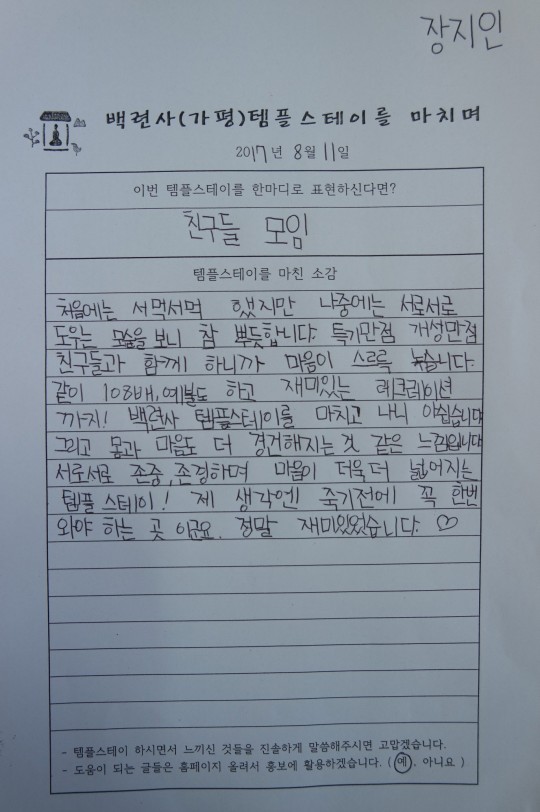 장지인
백련사(가평)템플스테이를 마치며
2017년 8월 11일
이번 템플스테이를 한마디로 표현하신다면?
친구들 모임
템플스테이를 마친 소감
처음에는 서먹서먹 했지만 나중에는 서로서로
도우는 모습을 보니 참 뿌듯합니다. 특기만점 개성만점
친구들과 함께 하니까 마음이 스르륵 녹습니다.
같이 108배, 예불도 하고 재미있는 레크레이션
까지! 백련사 템플스테이를 마치고 나니 아쉽습니다
그리고 몸과 마음도 더 경건해지는 것 같은 느낌입니다
서로서로 존중, 존경하며 마음이 더욱 더 넓어지는
템플 스테이! 제 생각엔 죽기전에 꼭 한번
와야 하는 곳 이군요. 정말 재미있었습니다. ♡
- 템플스테이 하시면서 느끼신 것들을 진솔하게 말씀해주시면 고맙겠습니다.
- 도움이 되는 글들은 홈페이지 올려서 홍보에 활용하겠습니다. ( 예, 아니요 )